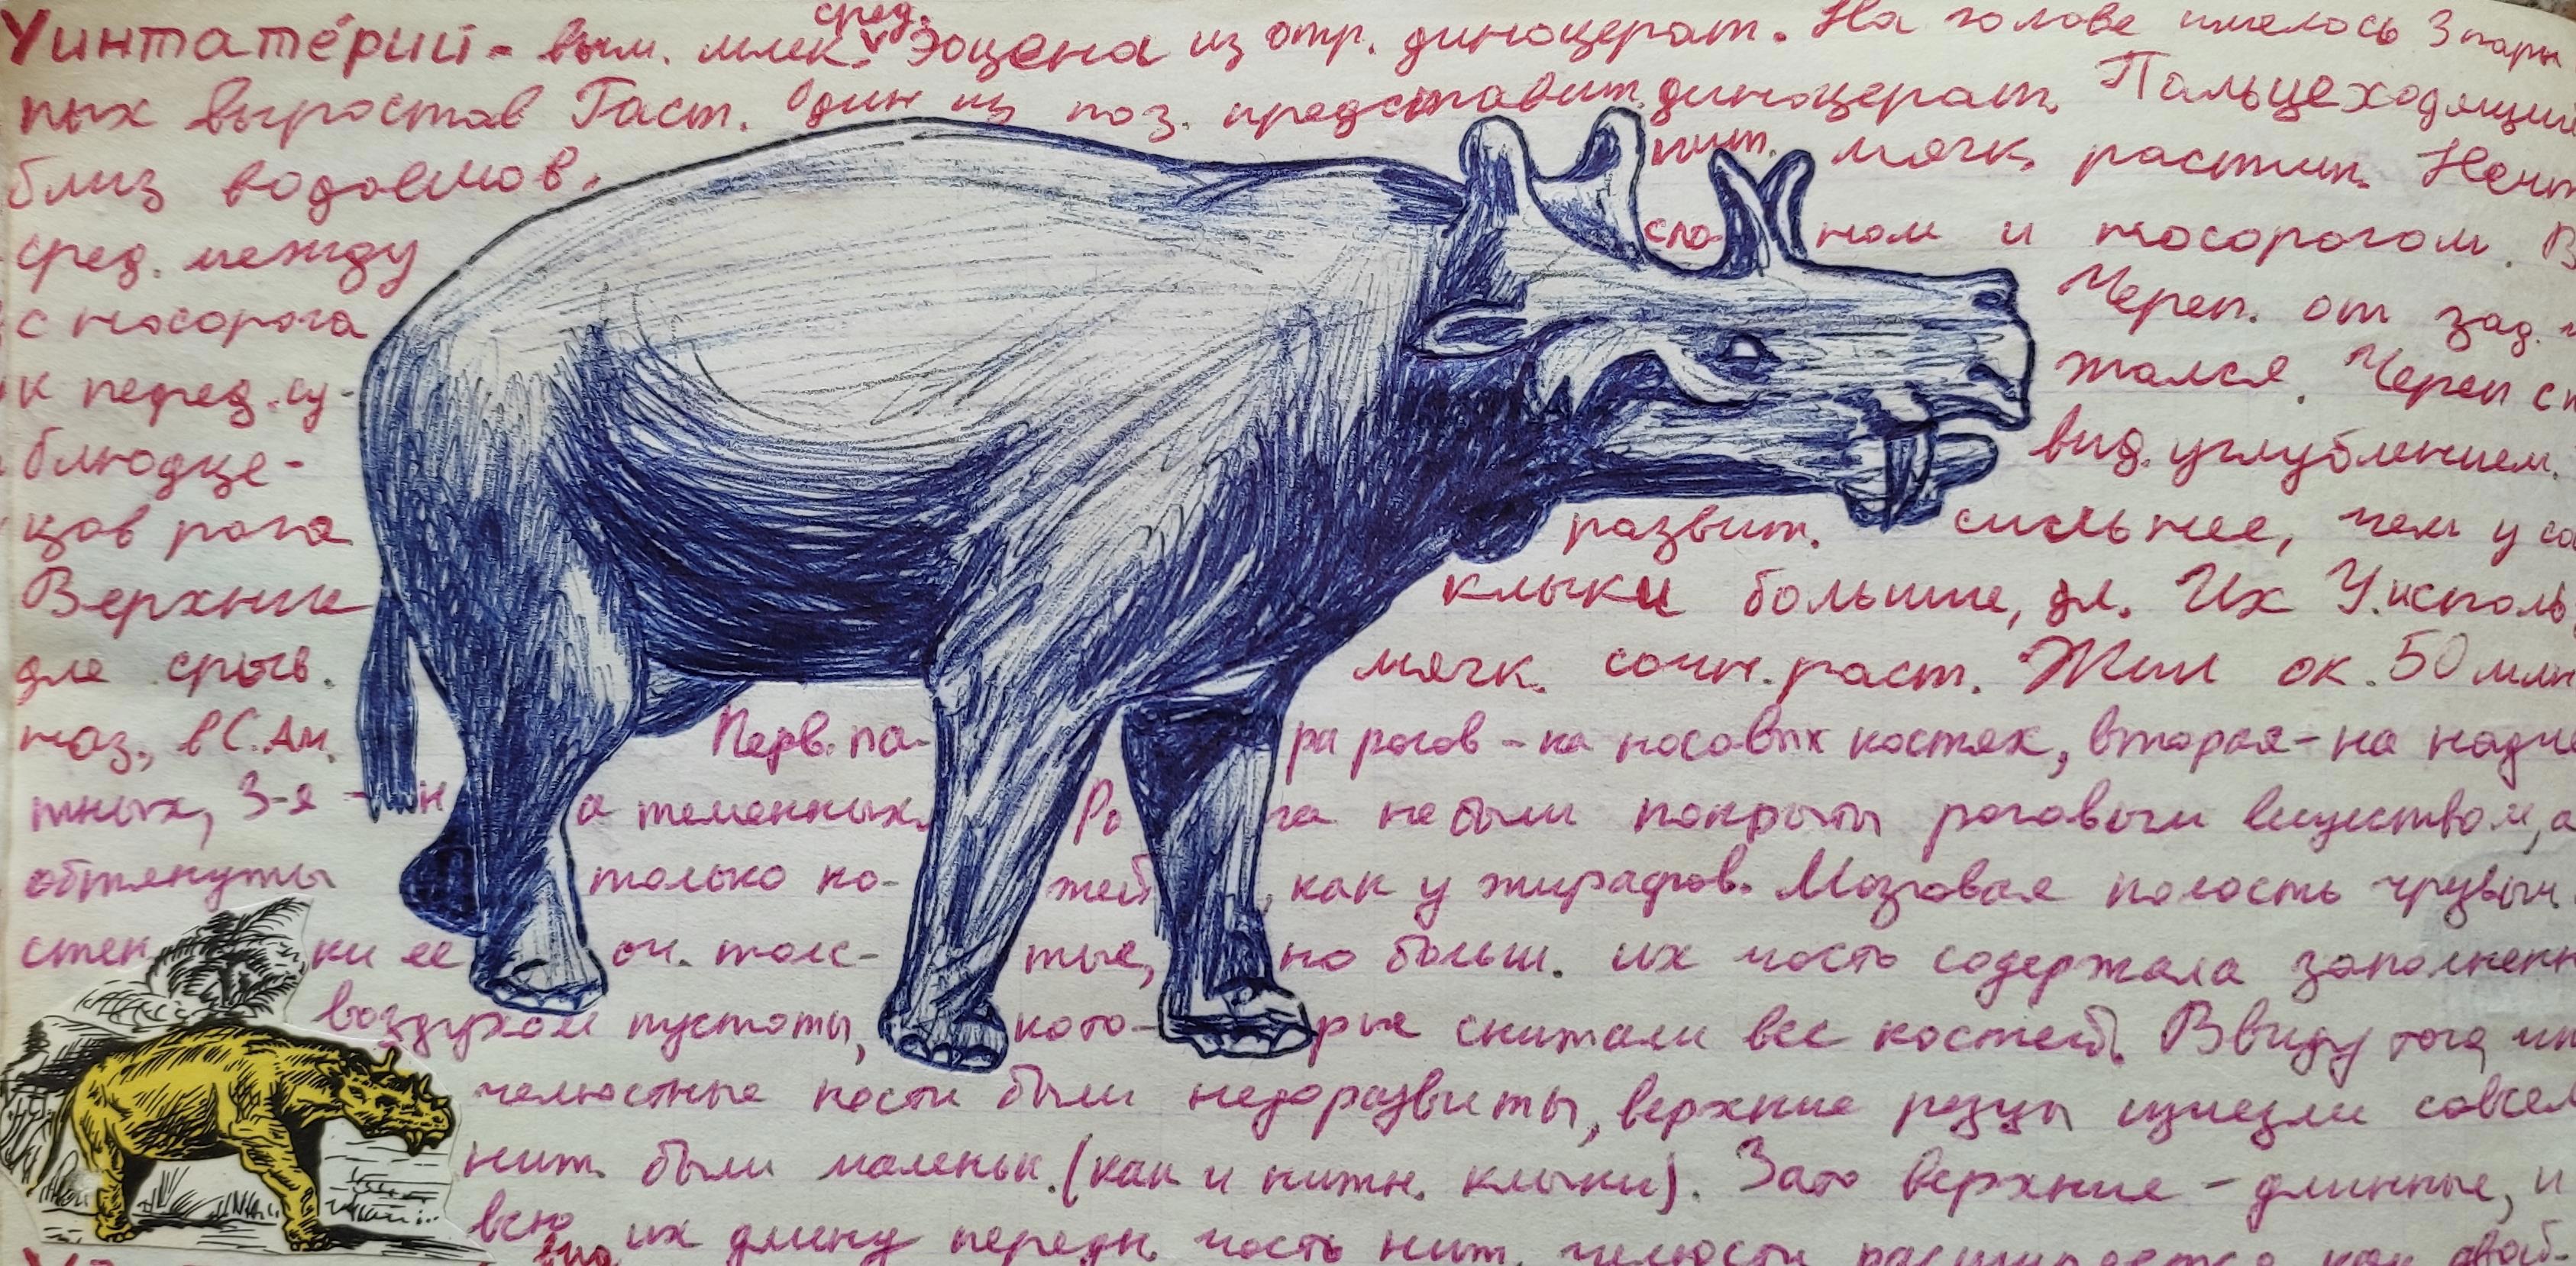 сред.
Уинтате́рий - вым. млек. v Эоцена из отр. диноцерат. На голове имелось 3 пары
ных выростов Гаст. Один из поз. представит. диноцерат. Пальцеходящий
близ водоемов. пит. мягк. растит.
сред. между слоном и носорогом. В
с носорога Череп. от зад.
к перед. су- жался. Череп
блюдце- вид. углублением.
цов рога развит. сильнее, чем у
Верхние клыки большие, дл. Их У. исполь
для срыв. мягк. сочн. раст. Жил ок. 50 млн
наз., в С. Ам. Перв. па- ра рогов - на носовых костях, вторая - на надче
тных, 3-я - н а теменных. Ро га не были покрыты роговым веществом, а
обтянуты только ко- жей, как у жирафов. Мозговая полость
стен ки ее оч. толс- тые, но больш. их часть содержала заполненн
воздухом пустоты, кото- рые снижали вес костей. Ввиду того,
челюстные кости были недоразвиты, верхние резцы исчезли совсем
ниж. были маленьк. (как и нижн. клыки). Зато верхние - длинные, и
всю их длину передн. часть ниж. челюсти расширяется как
вид